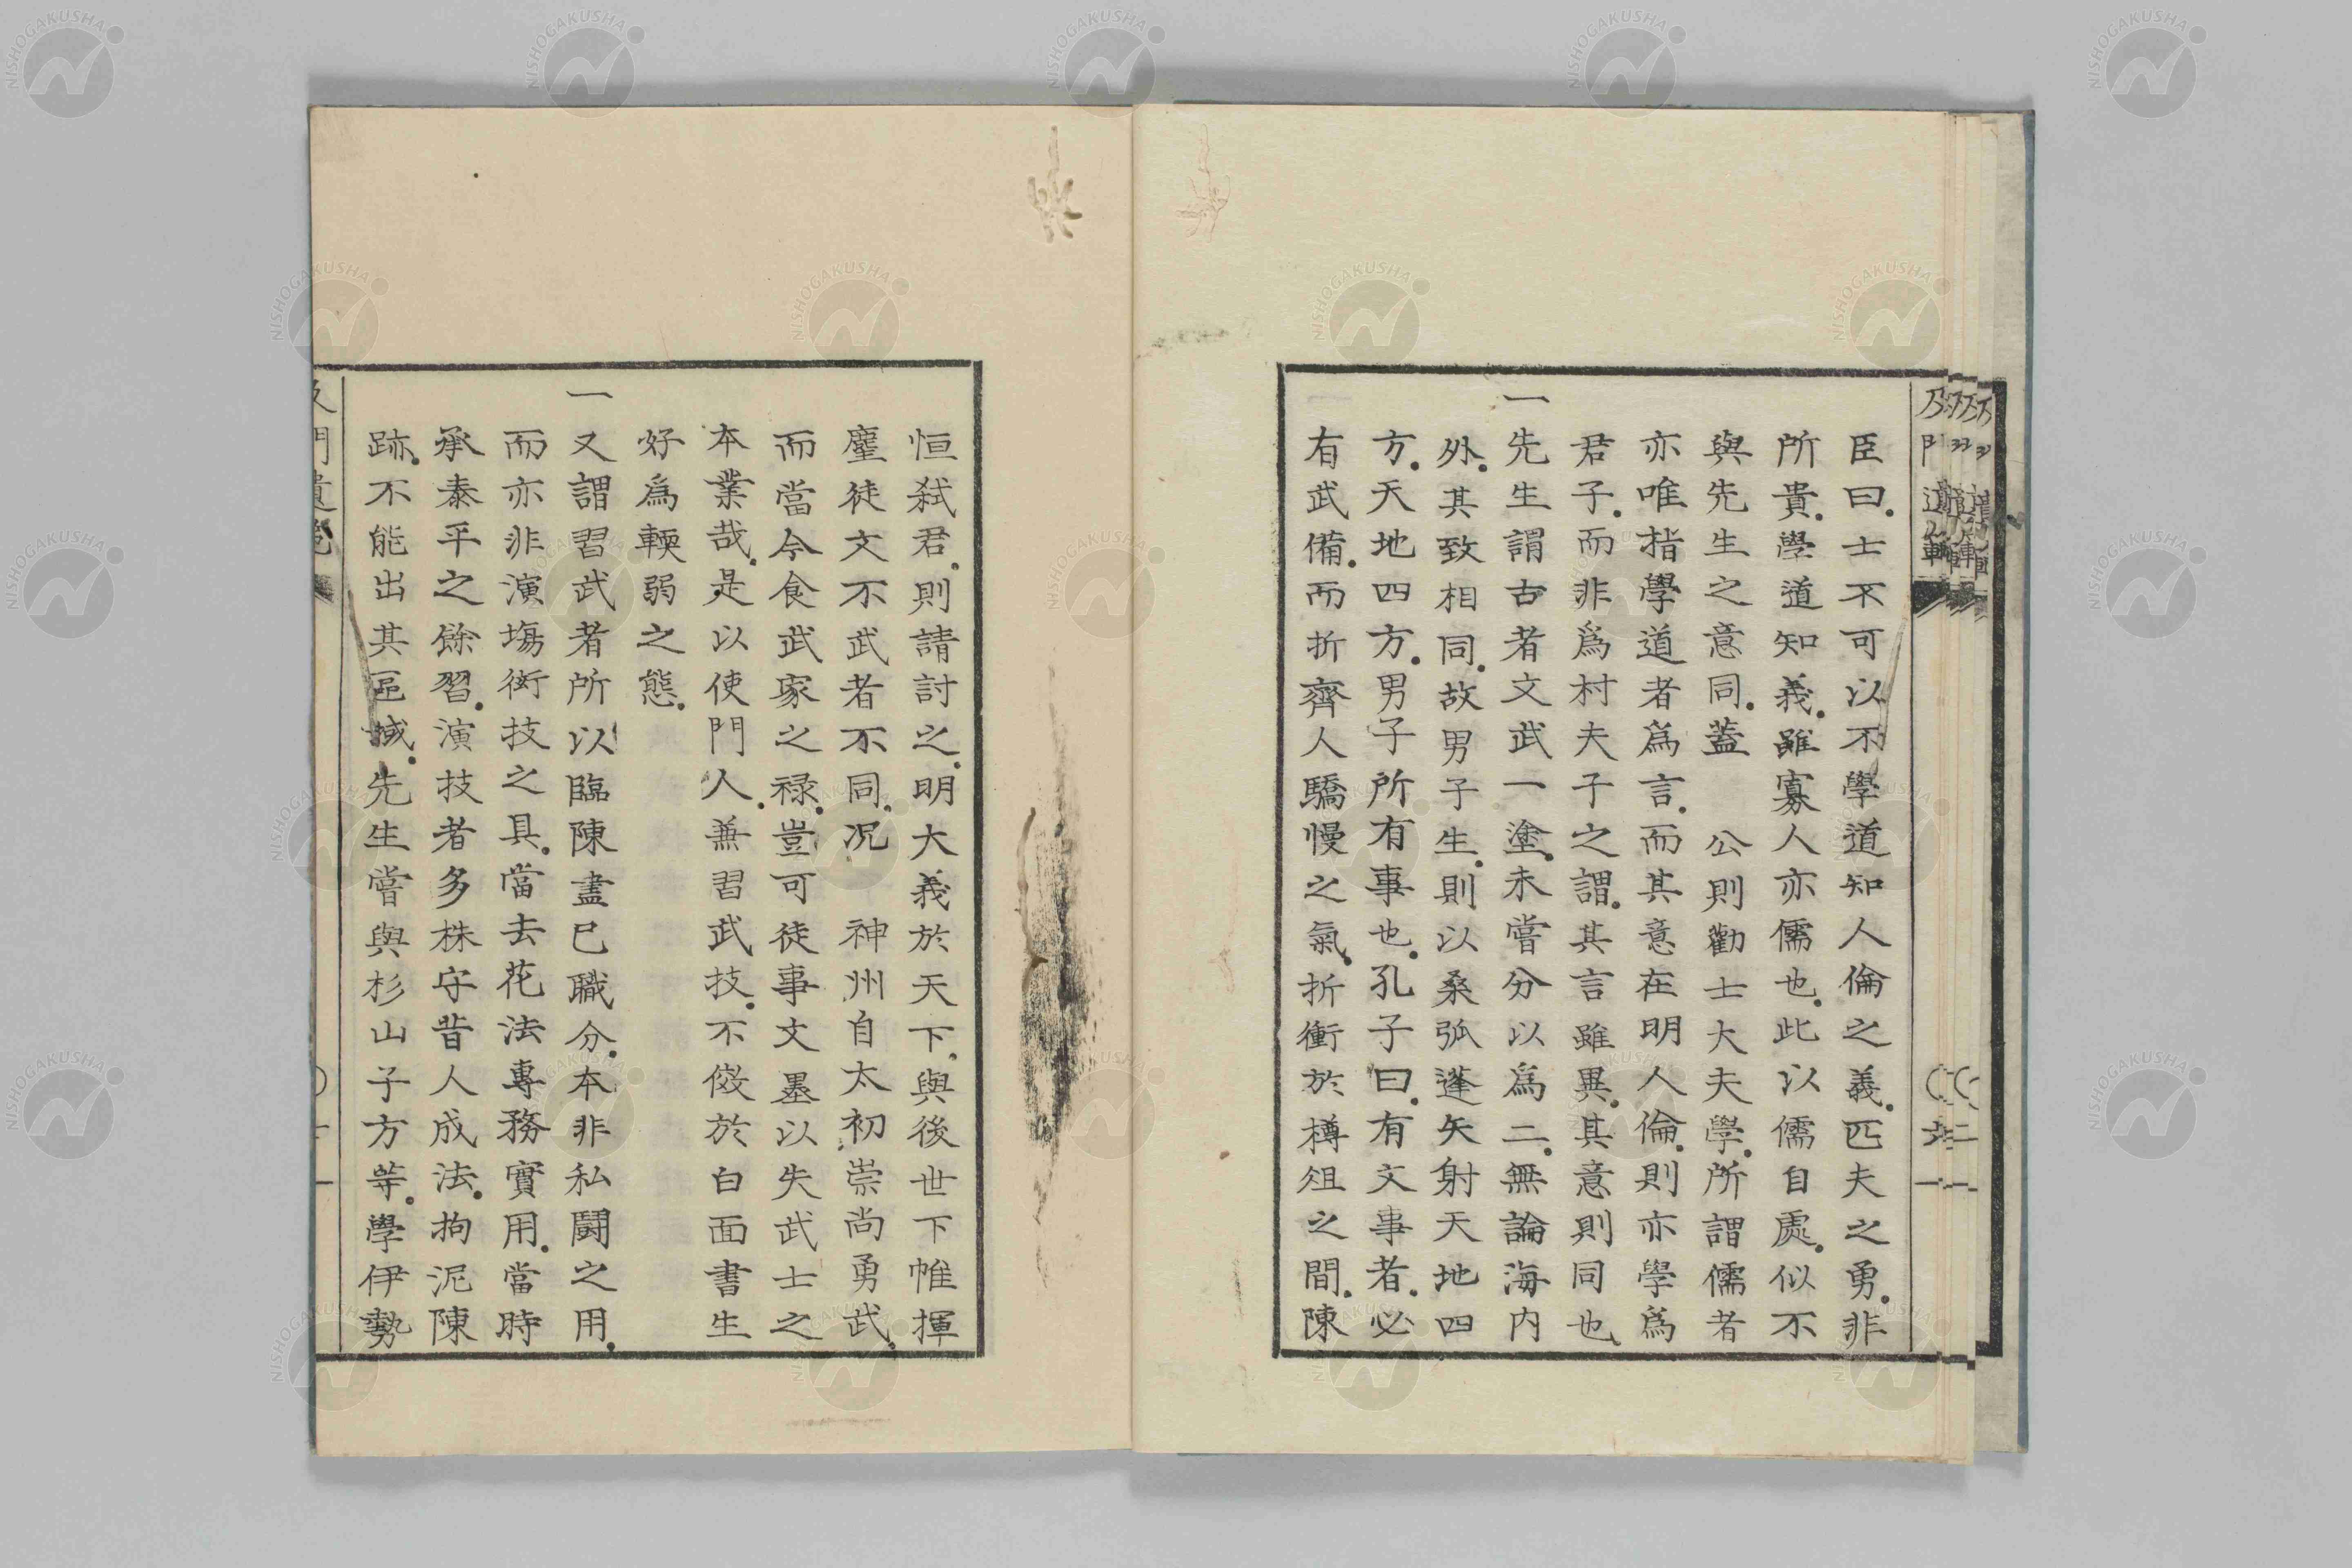 臣曰士不可以不學道知人倫之義匹夫之勇非
所貴學道知義雖寡人亦儒也此以儒自處似不
與先生之意同蓋　公則勸士大夫學所謂儒者
亦唯指學道者爲言而其意在明人倫則亦學爲
君子而非爲村夫子之謂其言雖異其意則同也
一先生謂古者文武一塗未嘗分以爲二無論海内
外其致相同故男子生則以桑弧蓬矢射天地四
方天地四方男子所有事也孔子曰有文事者必
有武備而折齊人驕慢之氣折衝於樽俎之間陳
恒弑君則請討之明大義於天下與後世下帷揮
麈徒文不武者不同况　神州自太初崇尚勇武
而當今食武家之禄豈可徒事文墨以失武士之
本業哉是以使門人兼習武技不俲於白面書生
好爲輭弱之態
一又謂習武者所以臨陳盡已職分本非私鬪之用
而亦非演塲衒技之具當去花法專務實用當時
承泰平之餘習演技者多株守昔人成法拘泥陳
跡不能出其區域先生嘗與杉山子方等學伊勢
NISHOGAKUSHA